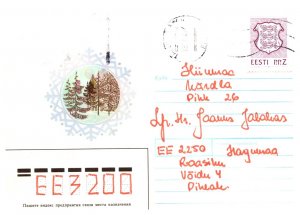 EESTI PP.Z
Hiiumaa
Kärdla
Pikk 26
Lp. Hr. Jaanus Jalakas
EE 2250 Hagumaa
Raasiku
Võidu 4
EE3200
Пишите индекс предприятия связи места назначения